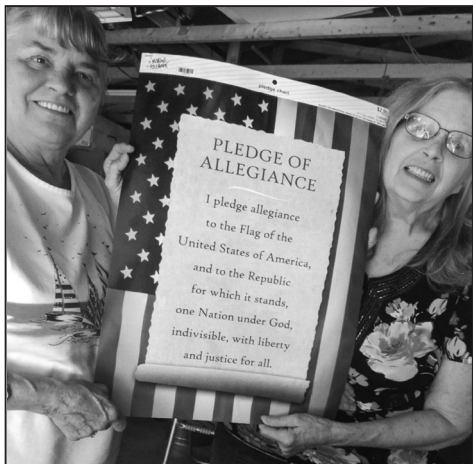 pledge chart
PLEDGE OF
ALLEGIANCE
I pledge allegiance
to the Flag of the
United States of America,
and to the Republic
for which it stands,
one Nation under God,
indivisible, with liberty
and justice for all.